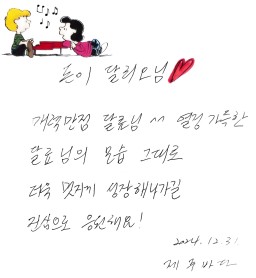 돈이 달리오님
개력만점 달료님 ^^ 열정 가득한
달료님의 모습 그대로
더욱 멋지게 성장해나가길
진심으로 응원해요!
2024.12.31.
제주바다